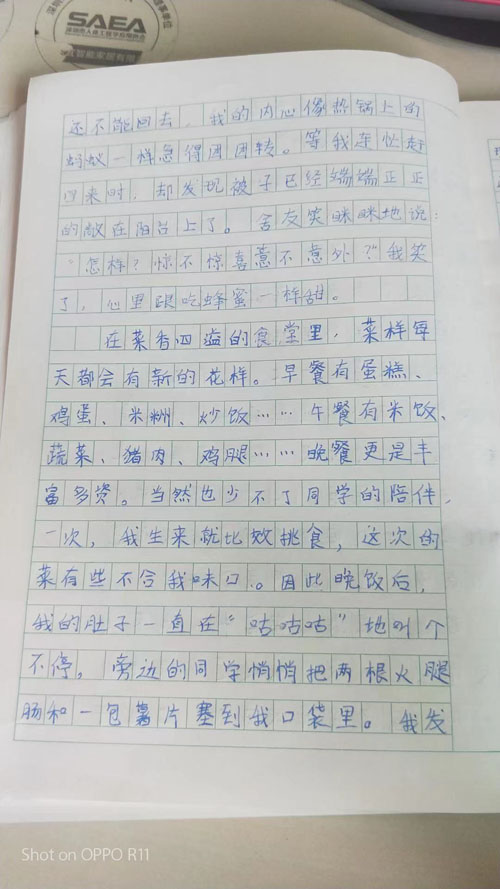 SAEA
还不能回去，我的内心像热锅上的
蚂蚁一样急得团团转。等我连忙赶
回来时，却发现被子已经端端正正
的放在阳台上了。舍友笑眯眯地说：
“怎样？惊不惊喜意不意外？”我笑
了，心里跟吃蜂蜜一样甜。
在菜香四溢的食堂里，菜样每
天都会有新的花样。早餐有蛋糕、
鸡蛋、米粥、炒饭……午餐有米饭、
蔬菜、猪肉、鸡腿……晚餐更是丰
富多资。当然也少不了同学的陪伴，
一次，我生来就比效挑食，这次的
菜有些不合我味口。因此晚饭后，
我的肚子一直在“咕咕咕”地叫个
不停。旁边的同学悄悄把两根火腿
肠和一包薯片塞到我口袋里。我发
Shot on OPPO R11